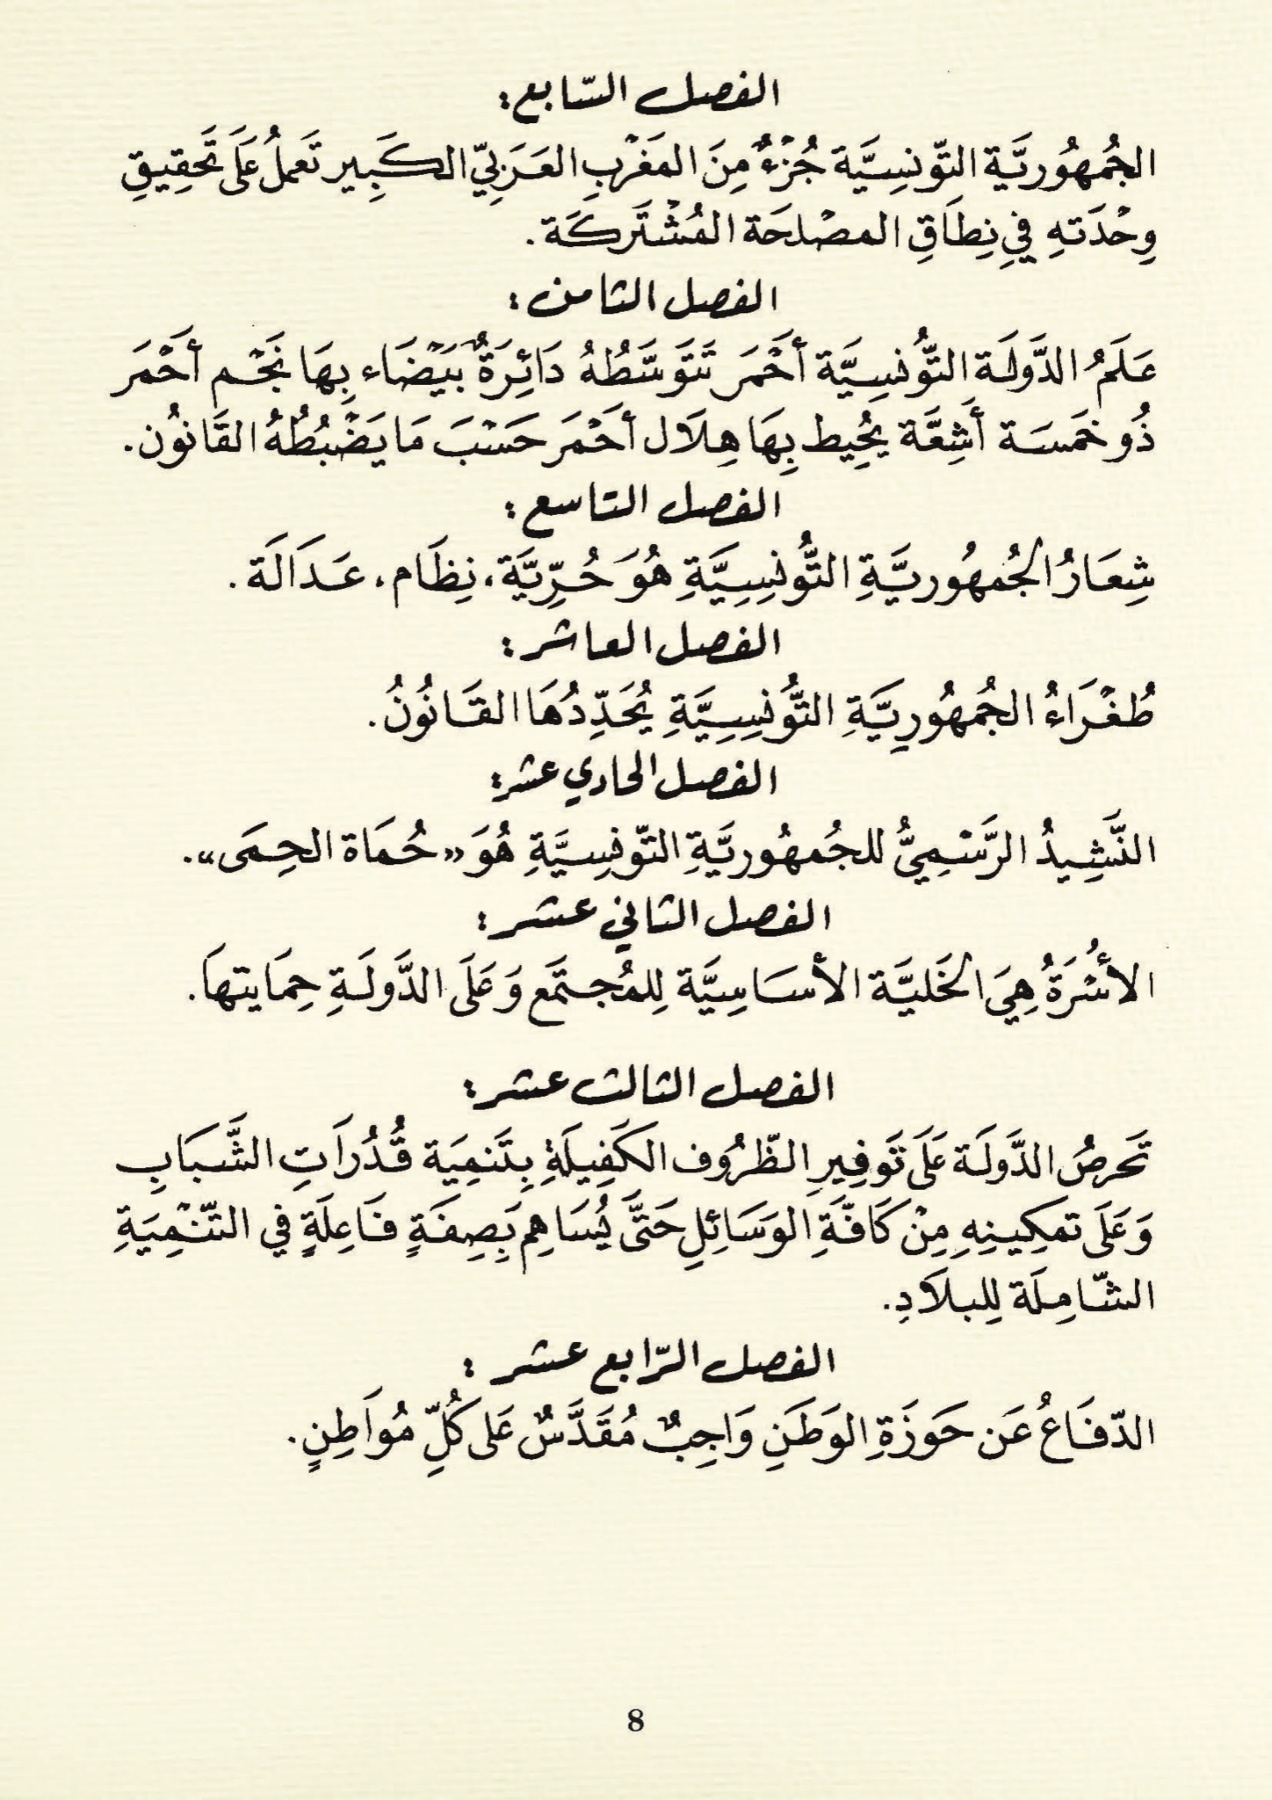 الفصل السّابع:
الجُمهُوريَّة التّونسِيَّة جُزْءٌ مِنَ المَغْربِ العَرَبِيّ الكَبِير تَعملُ عَلَى تَحقِيقِ
وِحْدَتهِ فِي نِطَاقِ المصْلحَة المُشْتَركَة.
الفصل الثامن:
عَلَمُ الدَّولَة التُّونسِيَّة أحْمَر تَتَوسَّطُهُ دَائِرَةٌ بَيْضَاء بِهَا نَجْم أحْمَر
ذُو خَمسَة أَشِعَّة يُحِيط بِهَا هِلَال أحْمَر حَسْبَ مَا يَضْبُطُهُ القَانُون.
الفصل التاسع:
شِعَارُ الجُمهُوريَّةِ التُّونسِيَّةِ هُوَ حُرِّيَّة، نِظَام، عَدَالَة.
الفصل العاشر:
طُغْرَاءُ الجُمهُورِيَّةِ التُّونسِيَّةِ يُحَدِّدُهَا القَانُونُ.
الفصل الحادي عشر:
النَّشِيدُ الرَّسْمِيُّ للجُمهُوريَّةِ التّونسِيَّةِ هُوَ «حُمَاة الحِمَى».
الفصل الثاني عشر:
الأسْرَةُ هِيَ الخَليَّة الأسَاسِيَّة لِلمُجتَمَع وَعَلَى الدَّولَةِ حِمَايتهَا.
الفصل الثالث عشر:
تَحرصُ الدَّولَة عَلَى تَوفِيرِ الظّرُوف الكَفِيلَةِ بِتَنمِيَة قُدُرَاتِ الشَّبَابِ
وَعَلَى تمكِينِهِ مِنْ كَافَّةِ الوَسَائِلِ حَتَّى يُسَاهِم بِصِفَةٍ فَاعِلَةٍ في التّنْمِيَةِ
الشّامِلَة لِلبلَادِ.
الفصل الرّابع عشر :
الدّفَاعُ عَن حَوزَةِ الوَطَنِ وَاجِبٌ مُقَدَّسٌ عَلى كُلِّ مُوَاطِنٍ.
8